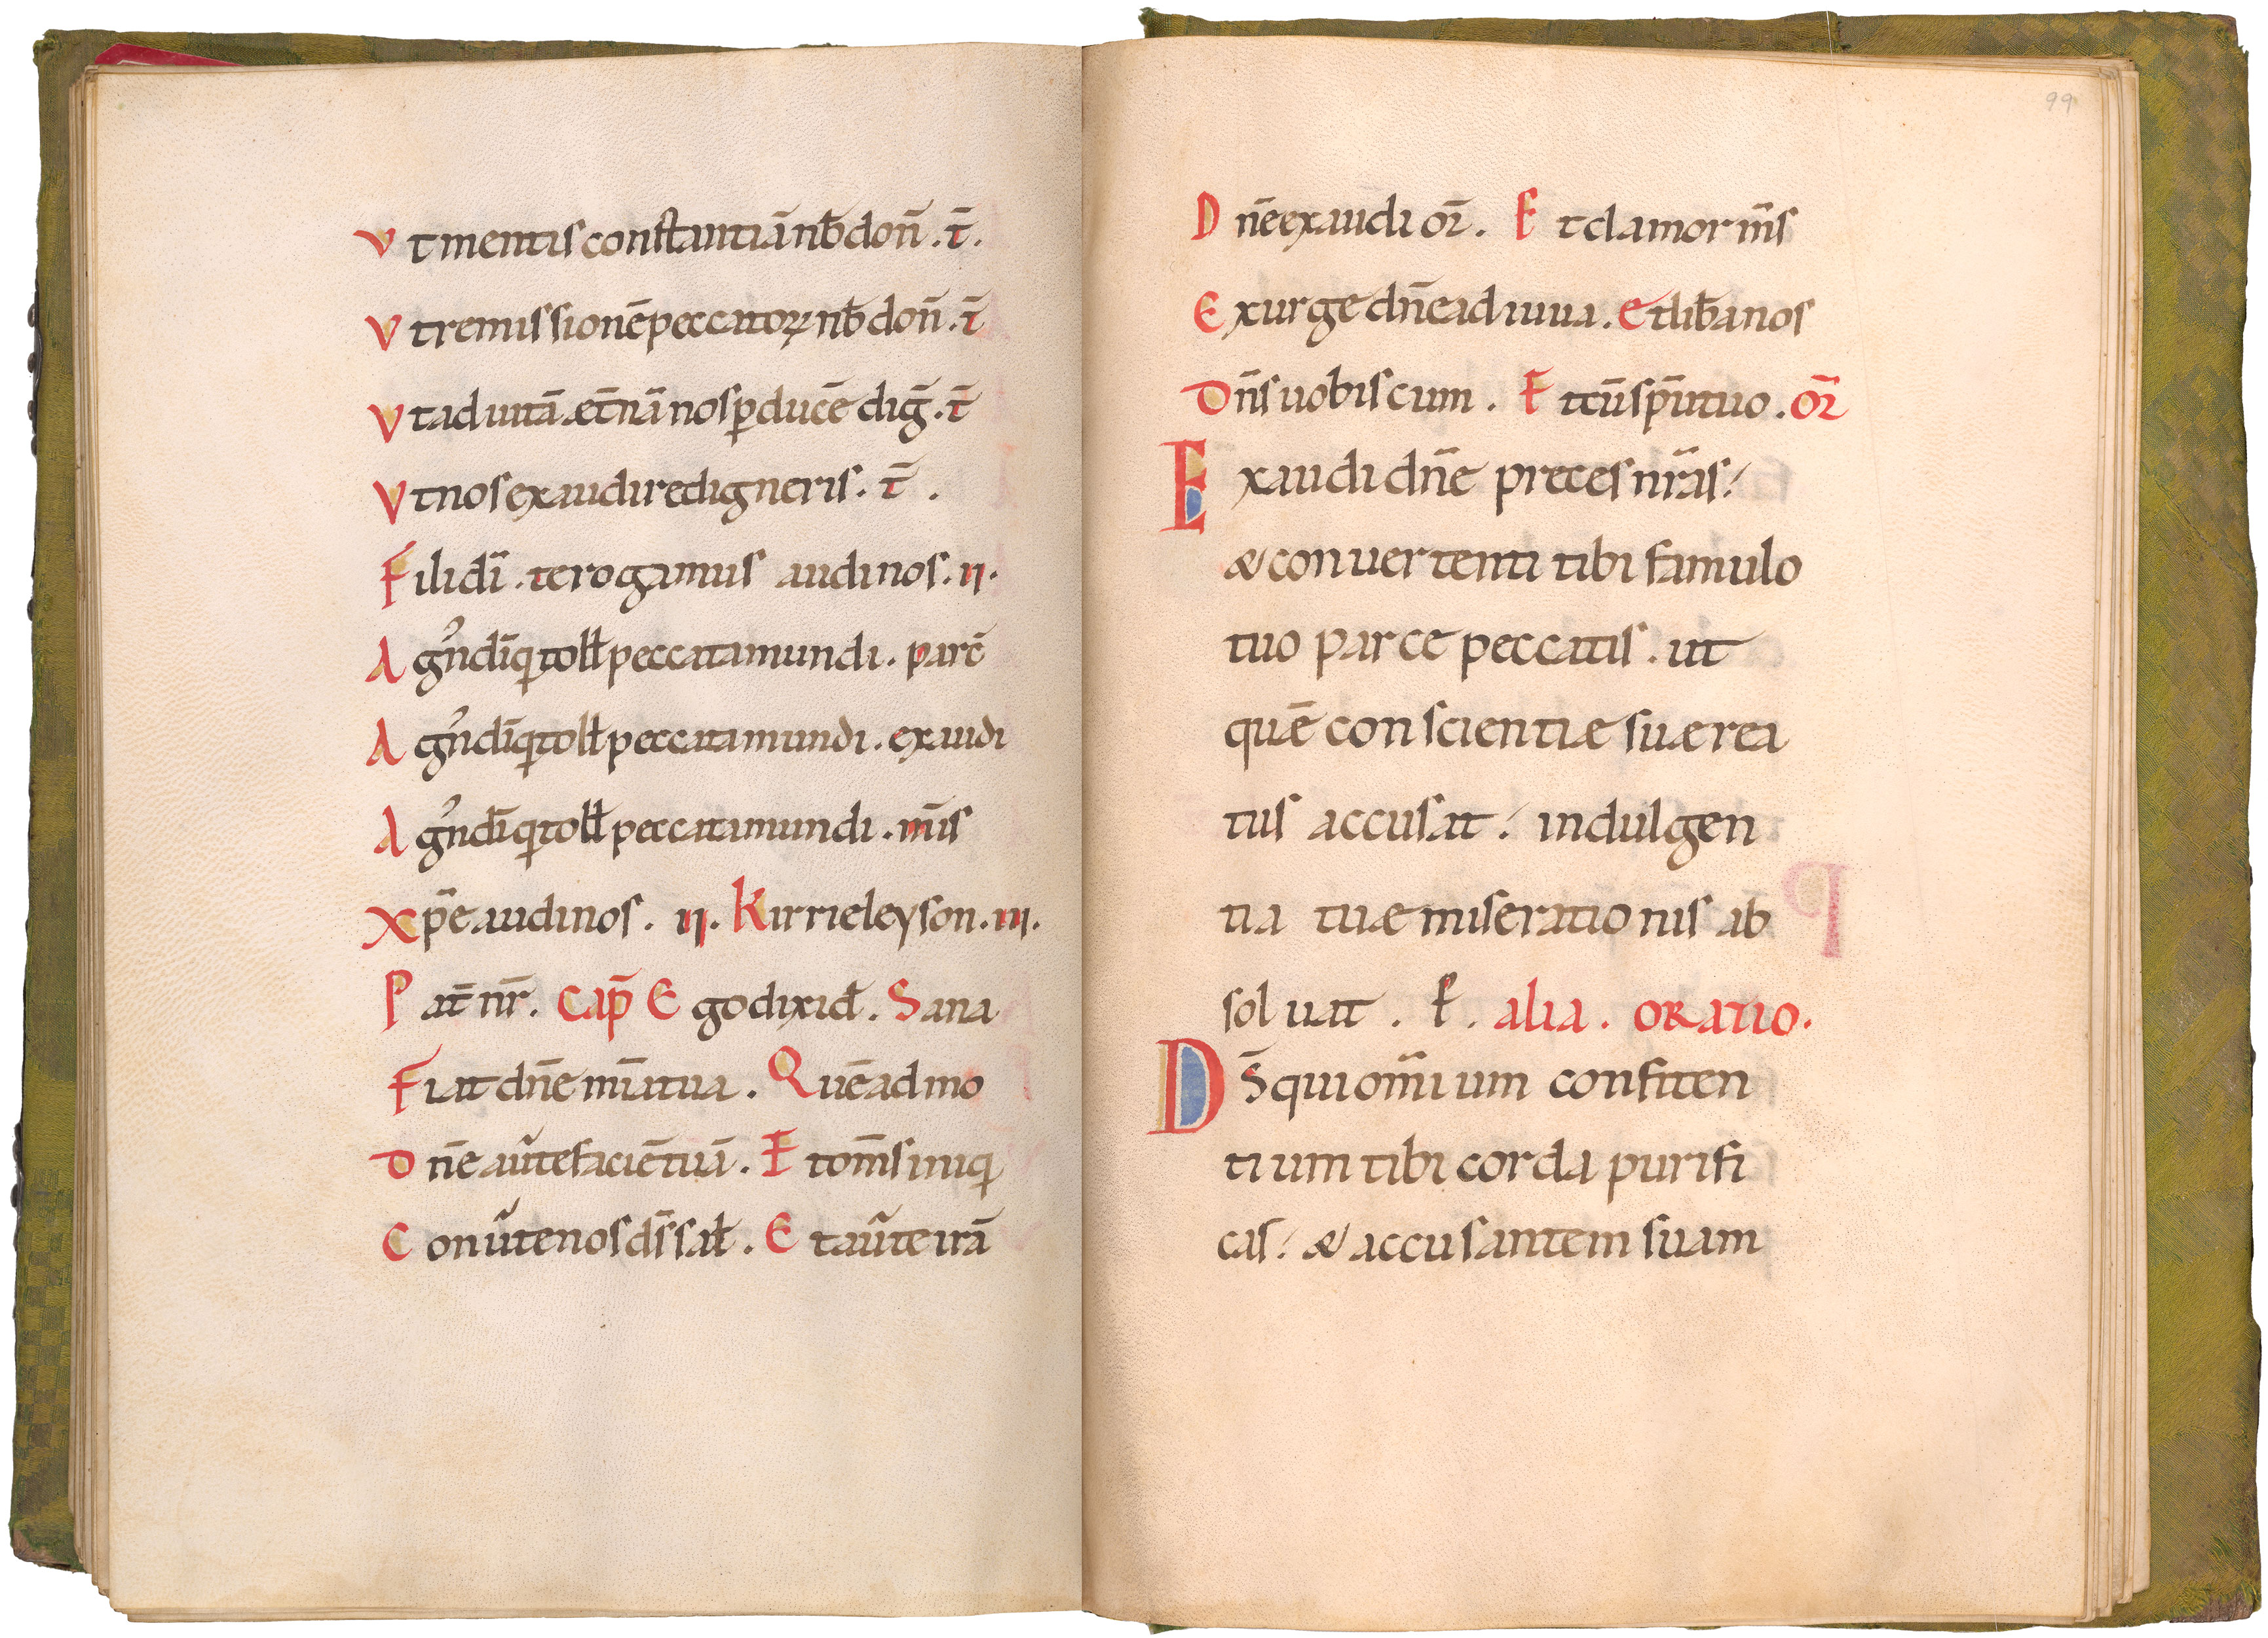 Vt mentis constantiā nƀ don̄. t̄.
Vt remissionē peccatoꝝ nƀ don̄. t̄
Vt ad uitā æt̄nā nos ꝑducē̄ dig̅. t̄
Vt nos exaudire digneris. t̄.
Fili dī. te rogamus audi nos. ii.
Agn᷒ dī qͥ toll̄ peccata mundi. parc̄
Agn᷒ dī qͥ toll̄ peccata mundi. exaudi
Agn᷒ dī qͥ toll̄ peccata mundi. mīs
Xp̄e audi nos. ii. Kirrieleyson. iii.
Pat̄ nr̄. Cap̄ Ego dixi đ. Sana
Fiat dn̄e mīa tua. Quēadmo
Dn̄e auͬte faciē tuā. Et om̄s iniqͥ
Conuͬte nos d̄s sat̄. Et auͬte irā
99
Dn̄e exaudi or̄. Et clamor m̄s
Exurge dn̄e adiuua. Et liƀa nos
Dn̄s uobiscum. Et cū sp̄u tuo. or̄
Exaudi dn̄e preces nr̄as.
& conuertenti tibi famulo
tuo parce peccatis. ut
quē conscientiæ suæ rea
tus accusat. indulgen
tia tuæ miserationis ab
soluat. P̄. alia. oratio.
D̄s qui om̄ium confiten
tium tibi corda purifi
cas. & accusantem suam